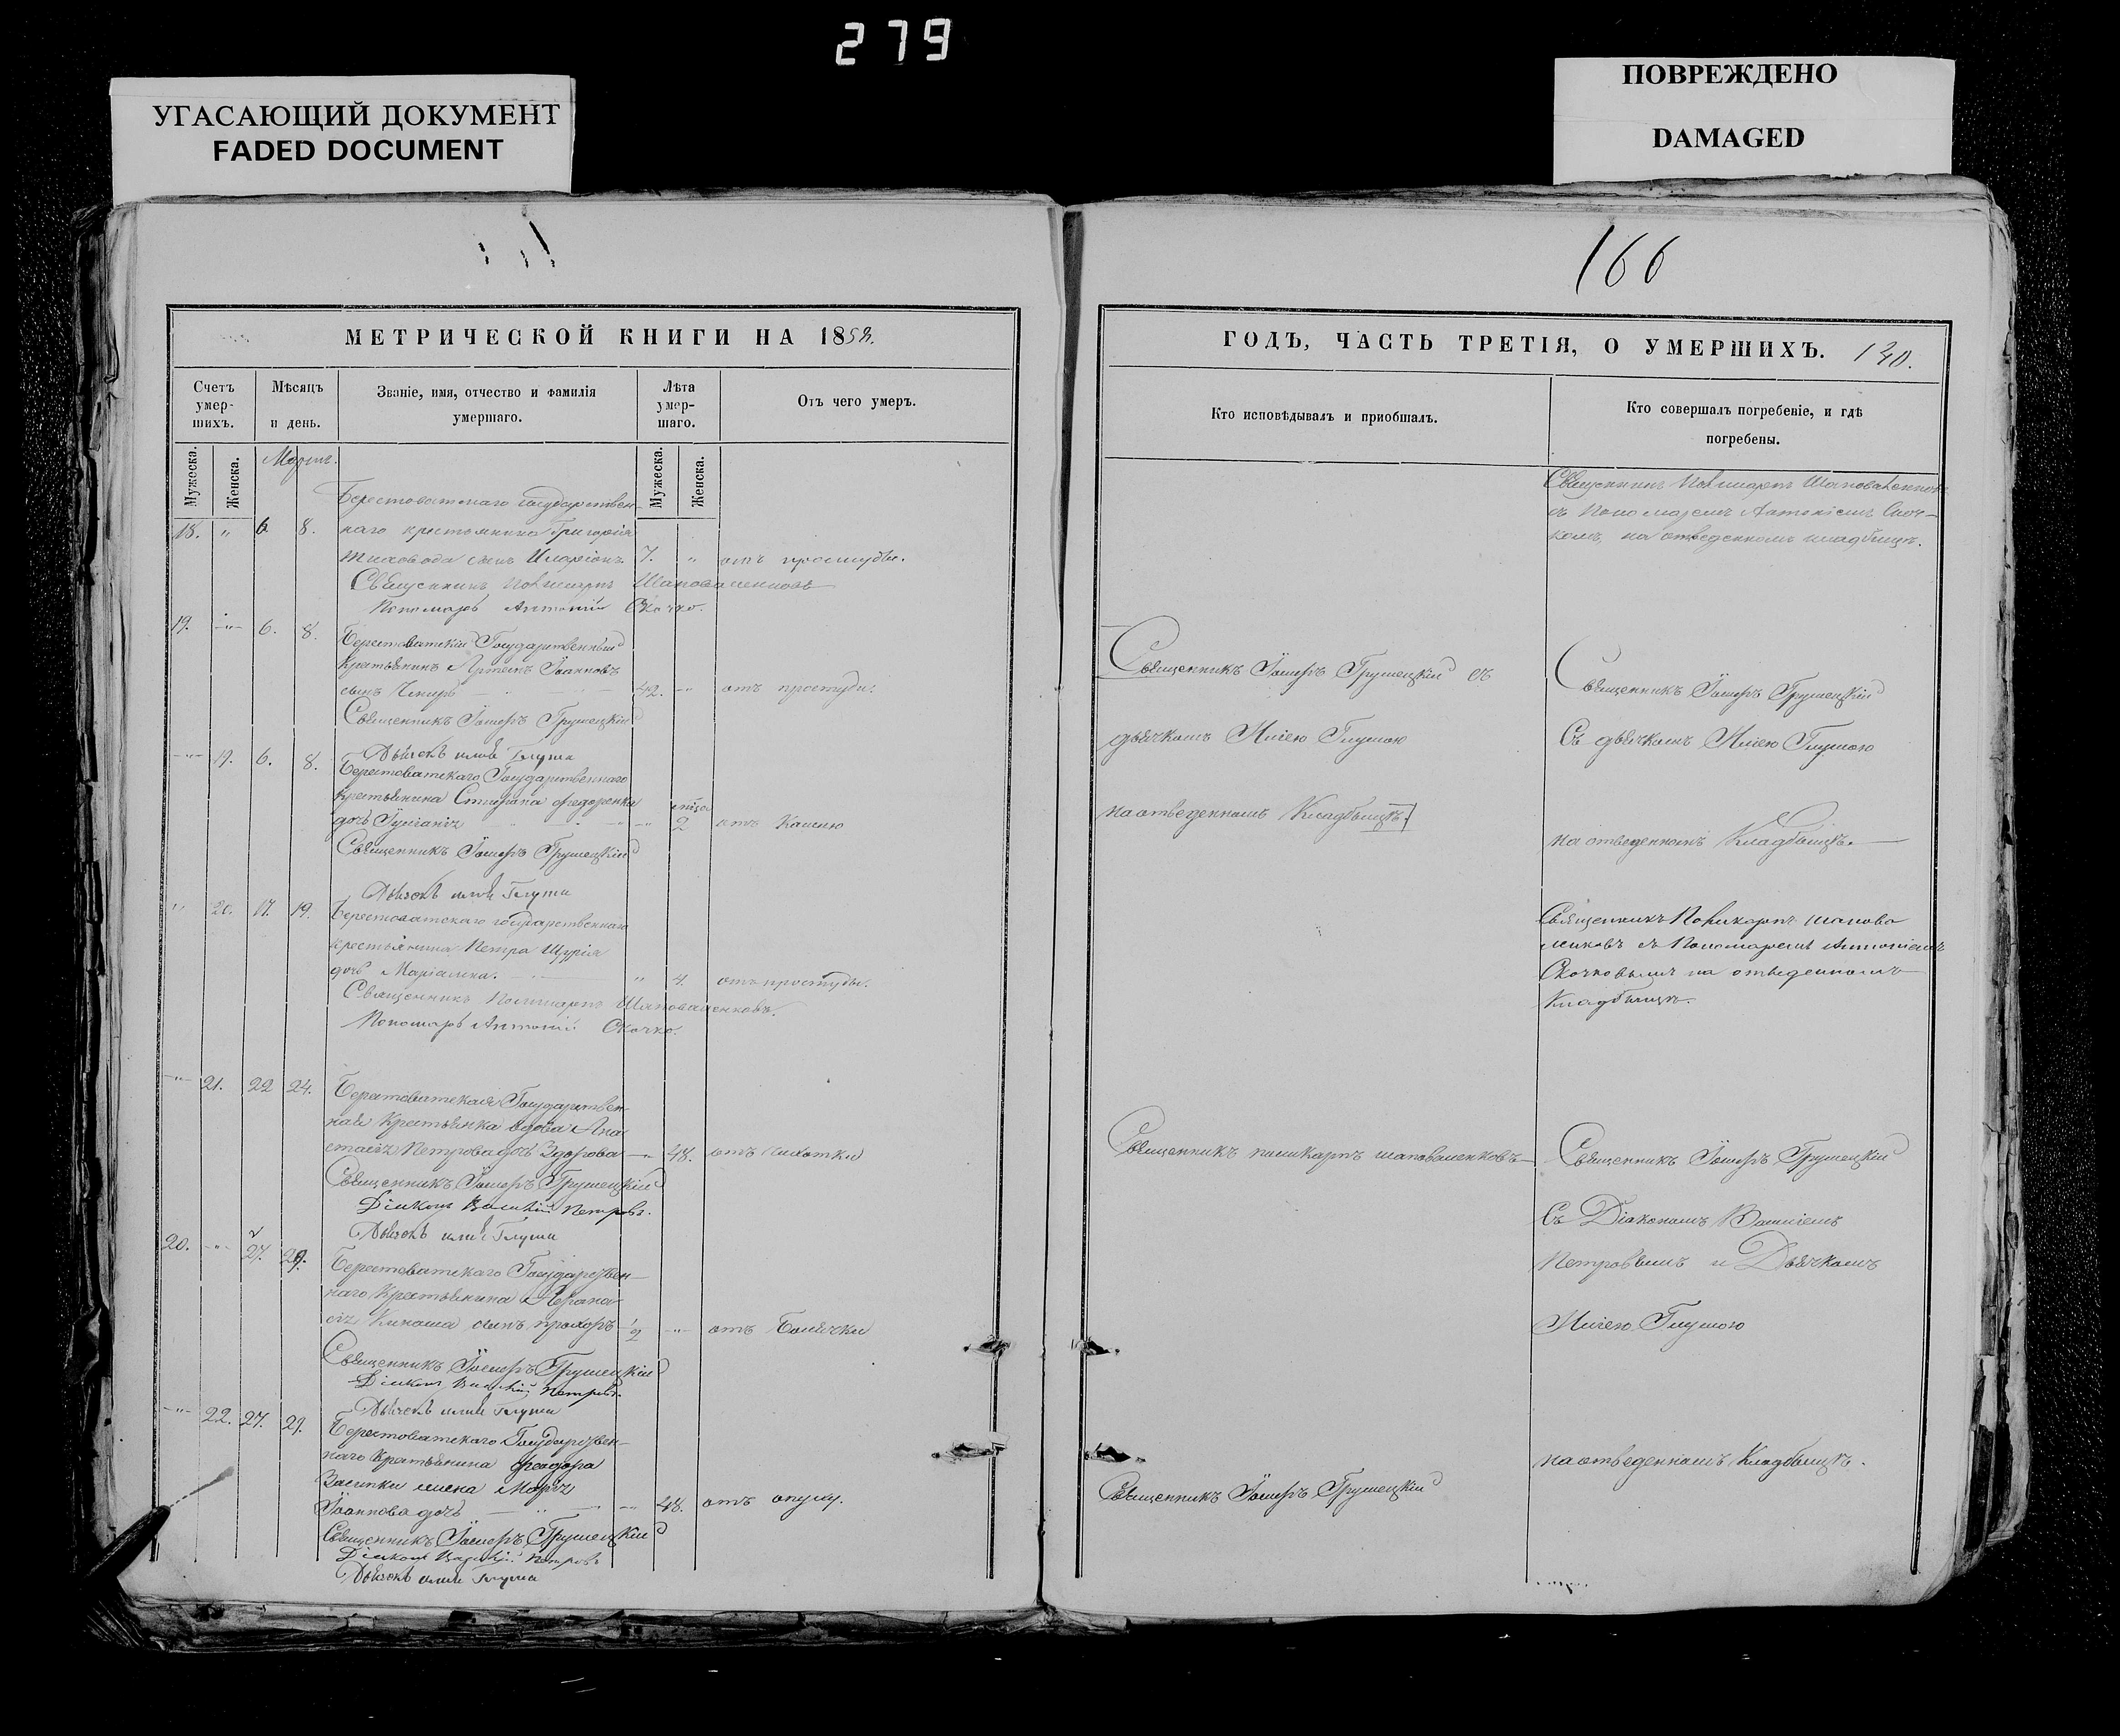 279
УГАСАЮЩИЙ ДОКУМЕНТ
FADED DOCUMENT
ПОВРЕЖДЕНО
DAMAGED
166
МЕТРИЧЕСКОЙ КНИГИ НА 1858.
Счетъ умер-шихъ.
Мѣсяцъ и день.
Званіе, имя, отчество и фамилія умершаго.
Лѣта умер-шаго.
Отъ чего умеръ.
Мужеска.
Женска.
Мужеска.
Женска.
Мартъ.
Берестоватскаго государствен-
18. " 6 8. наго крестьянина Григорія
сынъ Иларіонъ 7. " отъ простуды.
Священникъ Поликарпъ Шаповаленковъ
Пономарь Антоній Скочко.
19. " 6. 8.
Берестоватскій Государственный
Крестьянинъ Артемъ Іоанновъ
сынъ 42. " отъ простуды.
Священникъ Іосифъ Грушецкій
Дьячокъ Илія Глуша
" 19. 6. 8.
Берестоватскаго Государственнаго
Крестьянина Стефана Федоренка
дочь 2 отъ Кашлю
Священникъ Іосифъ Грушецкій
Дьячокъ Илія Глуша
" 20. 17. 19.
Берестоватскаго государственнаго
крестьянина Петра Щурія
дочь Маріанна. " 4. отъ простуды.
Священникъ Поликарпъ Шаповаленковъ.
Пономарь Антоній Скочко.
" 21. 22 24.
Берестоватская Государствен-
ная Крестьянка вдова Ана-
стасія Петрова дочь 48. отъ
Священникъ Іосифъ Грушецкій
Діаконъ Василій Петровъ.
Дьячокъ Илія Глуша
20. " 27. 29.
Берестоватскаго Государствен-
наго Крестьянина Афана-
сія сынъ Прохоръ 1/2 " отъ
Священникъ Іосифъ Грушецкій
Діаконъ Василій Петровъ.
Дьячокъ Илія Глуша
" 22. 27. 29.
Берестоватскаго Государствен-
наго Крестьянина Феодора
жена Марія
Іоаннова дочь " 48. отъ опуху.
Священникъ Іосифъ Грушецкій
Діаконъ Василій Петровъ
Дьячокъ Илія Глуша
ГОДЪ, ЧАСТЬ ТРЕТІЯ, О УМЕРШИХЪ. 140.
Кто исповѣдывалъ и приобщалъ.
Кто совершалъ погребеніе, и гдѣ
погребены.
Священникъ Поликарпъ Шаповаленковъ
съ Пономаремъ Антоніемъ Скоч-
комъ, на отведенномъ кладбищѣ.
Священникъ Іосифъ Грушецкій съ
дьячкомъ Иліею Глушою
на отведенномъ Кладбищѣ.
Священникъ Іосифъ Грушецкій
Съ дьячкомъ Иліею Глушою
на отведенномъ Кладбищѣ.
Священникъ Поликарпъ Шапова
ленковъ съ Пономаремъ Антоніемъ
Скочковымъ на отведенномъ
Кладбищѣ.
Священникъ поликарпъ шаповаленковъ
Священникъ Іосифъ Грушецкій
Съ Діакономъ Василіемъ
Петровымъ и Дьячкомъ
Иліею Глушою
на отведенномъ Кладбищѣ.
Священникъ Іосифъ Грушецкій